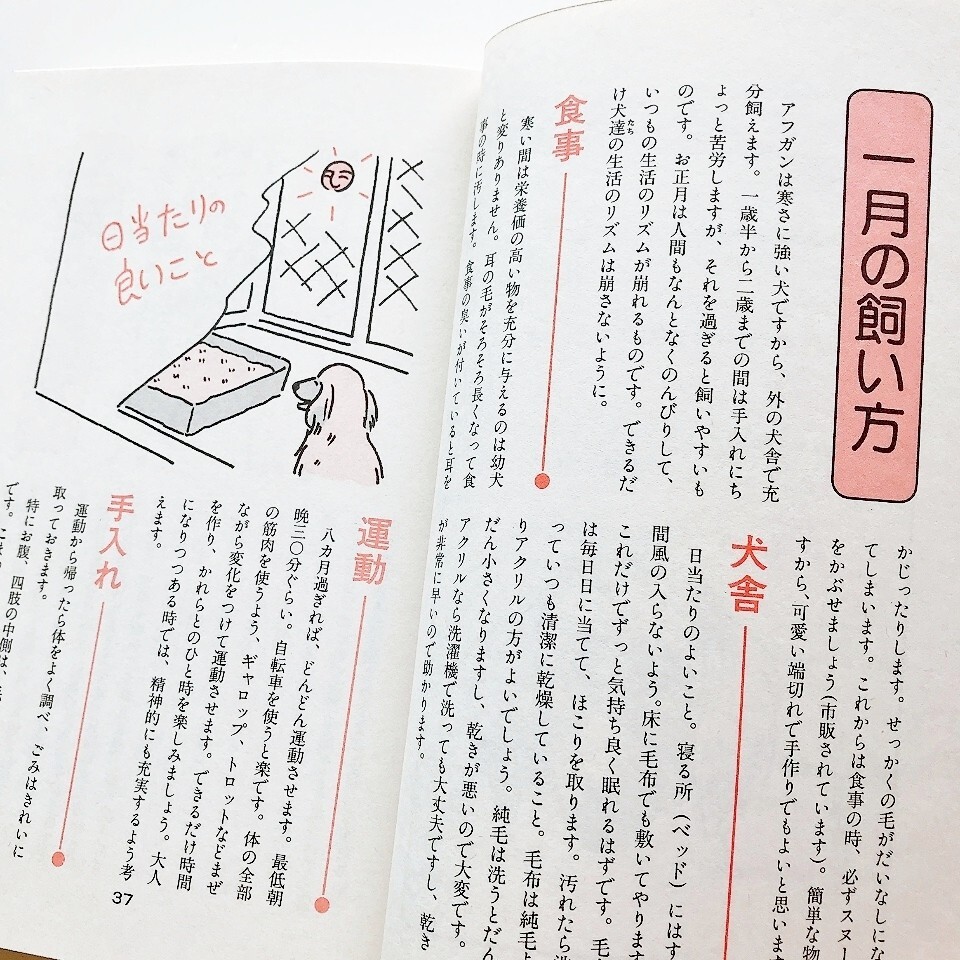 一月の飼い方
アフガンは寒さに強い犬ですから、外の犬舎で充
分飼えます。一歳半から二歳までの間は手入れにち
ょっと苦労しますが、それを過ぎると飼いやすいも
のです。お正月は人間もなんとなくのんびりして、
いつもの生活のリズムが崩れるものです。できるだ
け犬達の生活のリズムは崩さないように。
たち
食事
寒い間は栄養価の高い物を充分に与えるのは幼犬
と変りありません。耳の毛がそろそろ長くなって食
事の時に汚します。食事の臭いが付いていると耳を
かじったりします。せっかくの毛がだいなしにな
てしまいます。これからは食事の時、必ずスヌー
をかぶせましょう(市販されています)。簡単な物
すから、可愛い端切れで手作りでもよいと思いま
犬舎
日当たりのよいこと。寝る所(ベッド)にはす
間風の入らないよう。床に毛布でも敷いてやります
これだけでずっと気持ち良く眠れるはずです。毛
は毎日日に当てて、ほこりを取ります。汚れたら洗
っていつも清潔に乾燥していること。毛布は純毛よ
りアクリルの方がよいでしょう。純毛は洗うとだん
だん小さくなりますし、乾きが悪いので大変です。
アクリルなら洗濯機で洗っても大丈夫ですし、乾き
が非常に早いので助かります。
日当たりの
良いこと
運動
八カ月過ぎれば、どんどん運動させます。最低朝
晩三〇分ぐらい。自転車を使うと楽です。体の全部
の筋肉を使うよう、ギャロップ、トロットなどまぜ
ながら変化をつけて運動させます。できるだけ時間
を作り、かれらとのひと時を楽しみましょう。大人
になりつつある時では、精神的にも充実するよう考
えます。
手入れ
運動から帰ったら体をよく調べ、ごみはきれいに
取っておきます。
特にお腹、四肢の中側は、
です。
37